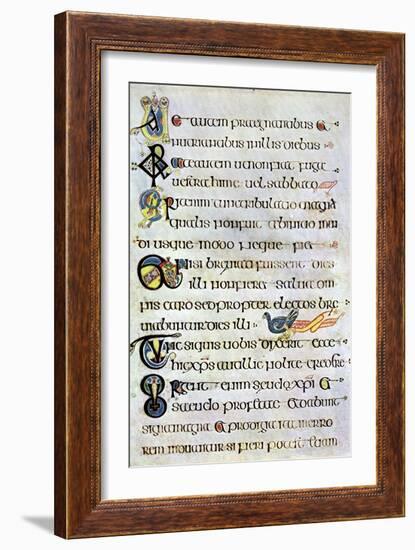 Uae autem praegnantibus et
nutrientibus in illis diebus
Orate autem ut non fiat fuga
uestra hieme uel sabbato
Erit enim tunc tribulatio magna
qualis non fuit ab initio mun
di usque modo neque fiet
Et nisi breuiati fuissent dies
illi non fieret salua om
nis caro sed propter electos bre
uiabuntur dies illi
Tunc si quis uobis dixerit ecce
hic xps aut illic nolite credere
Surgent enim seudo xpi et
seudo profetae et dabunt
signa magna et prodigia ita ut in erro
rem si fieri potest etiam